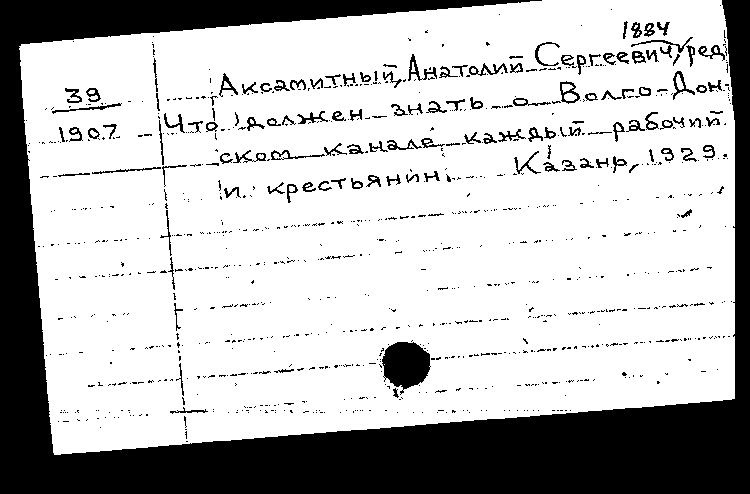 1884
39 Аксамитный, Анатолий Сергеевич, ред
1907 Что должен знать о Волго-Дон-
ском канале каждый рабочий
и крестьянин. Казань, 1929.